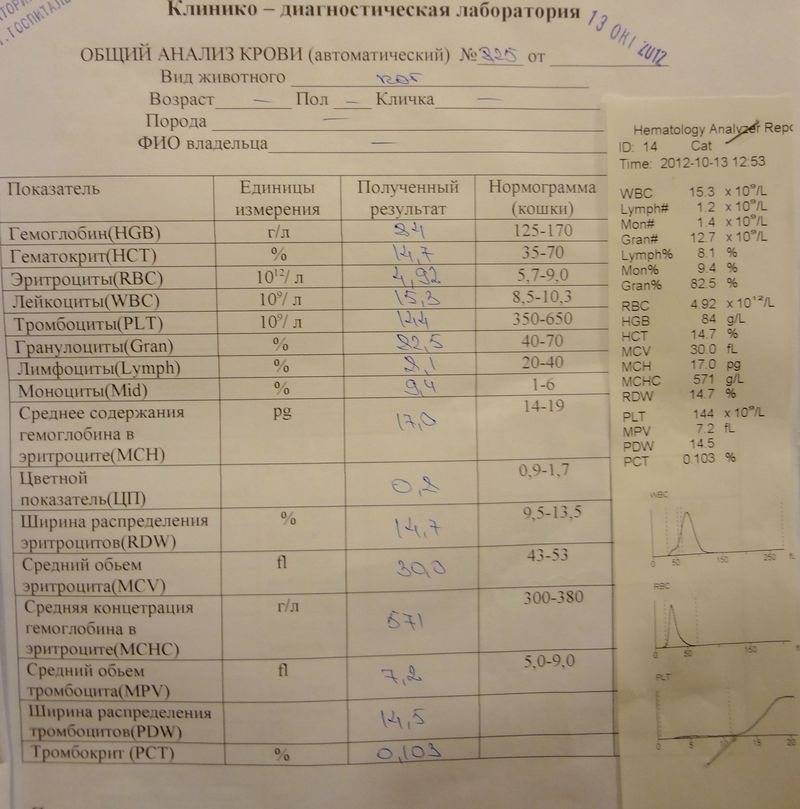 Клинико – диагностическая лаборатория
13 ОКТ 2012
ОБЩИЙ АНАЛИЗ КРОВИ (автоматический) № 225 от
Вид животного кот
Возраст — Пол — Кличка —
Порода —
ФИО владельца —
Показатель Единицы измерения Полученный результат Нормограмма (кошки)
Гемоглобин(HGB) г/л 84 125-170
Гематокрит(HCT) % 14,7 35-70
Эритроциты(RBC) 10¹²/ л 4,92 5,7-9,0
Лейкоциты(WBC) 10⁹/ л 15,3 8,5-10,3
Тромбоциты(PLT) 10⁹/ л 144 350-650
Гранулоциты(Gran) % 82,5 40-70
Лимфоциты(Lymph) % 8,1 20-40
Моноциты(Mid) % 9,4 1-6
Среднее содержания гемоглобина в эритроците(MCH) pg 17,0 14-19
Цветной показатель(ЦП) 0,2 0,9-1,7
Ширина распределения эритроцитов(RDW) % 14,7 9,5-13,5
Средний обьем эритроцита(MCV) fl 30,0 43-53
Средняя концетрация гемоглобина в эритроците(MCHC) г/л 571 300-380
Средний обьем тромбоцита(MPV) fl 7,2 5,0-9,0
Ширина распределения тромбоцитов(PDW) 14,5
Тромбокрит (PCT) % 0,103
Hematology Analyzer Repo
ID: 14 Cat
Time: 2012-10-13 12:53
WBC 15.3 x 10⁹/L
Lymph# 1.2 x 10⁹/L
Mon# 1.4 x 10⁹/L
Gran# 12.7 x 10⁹/L
Lymph% 8.1 %
Mon% 9.4 %
Gran% 82.5 %
RBC 4.92 x 10¹²/L
HGB 84 g/L
HCT 14.7 %
MCV 30.0 fL
MCH 17.0 pg
MCHC 571 g/L
RDW 14.7 %
PLT 144 x 10⁹/L
MPV 7.2 fL
PDW 14.5
PCT 0.103 %
WBC
0 50 150 250 fL
RBC
0 50 150
PLT
0 5 10 15 20